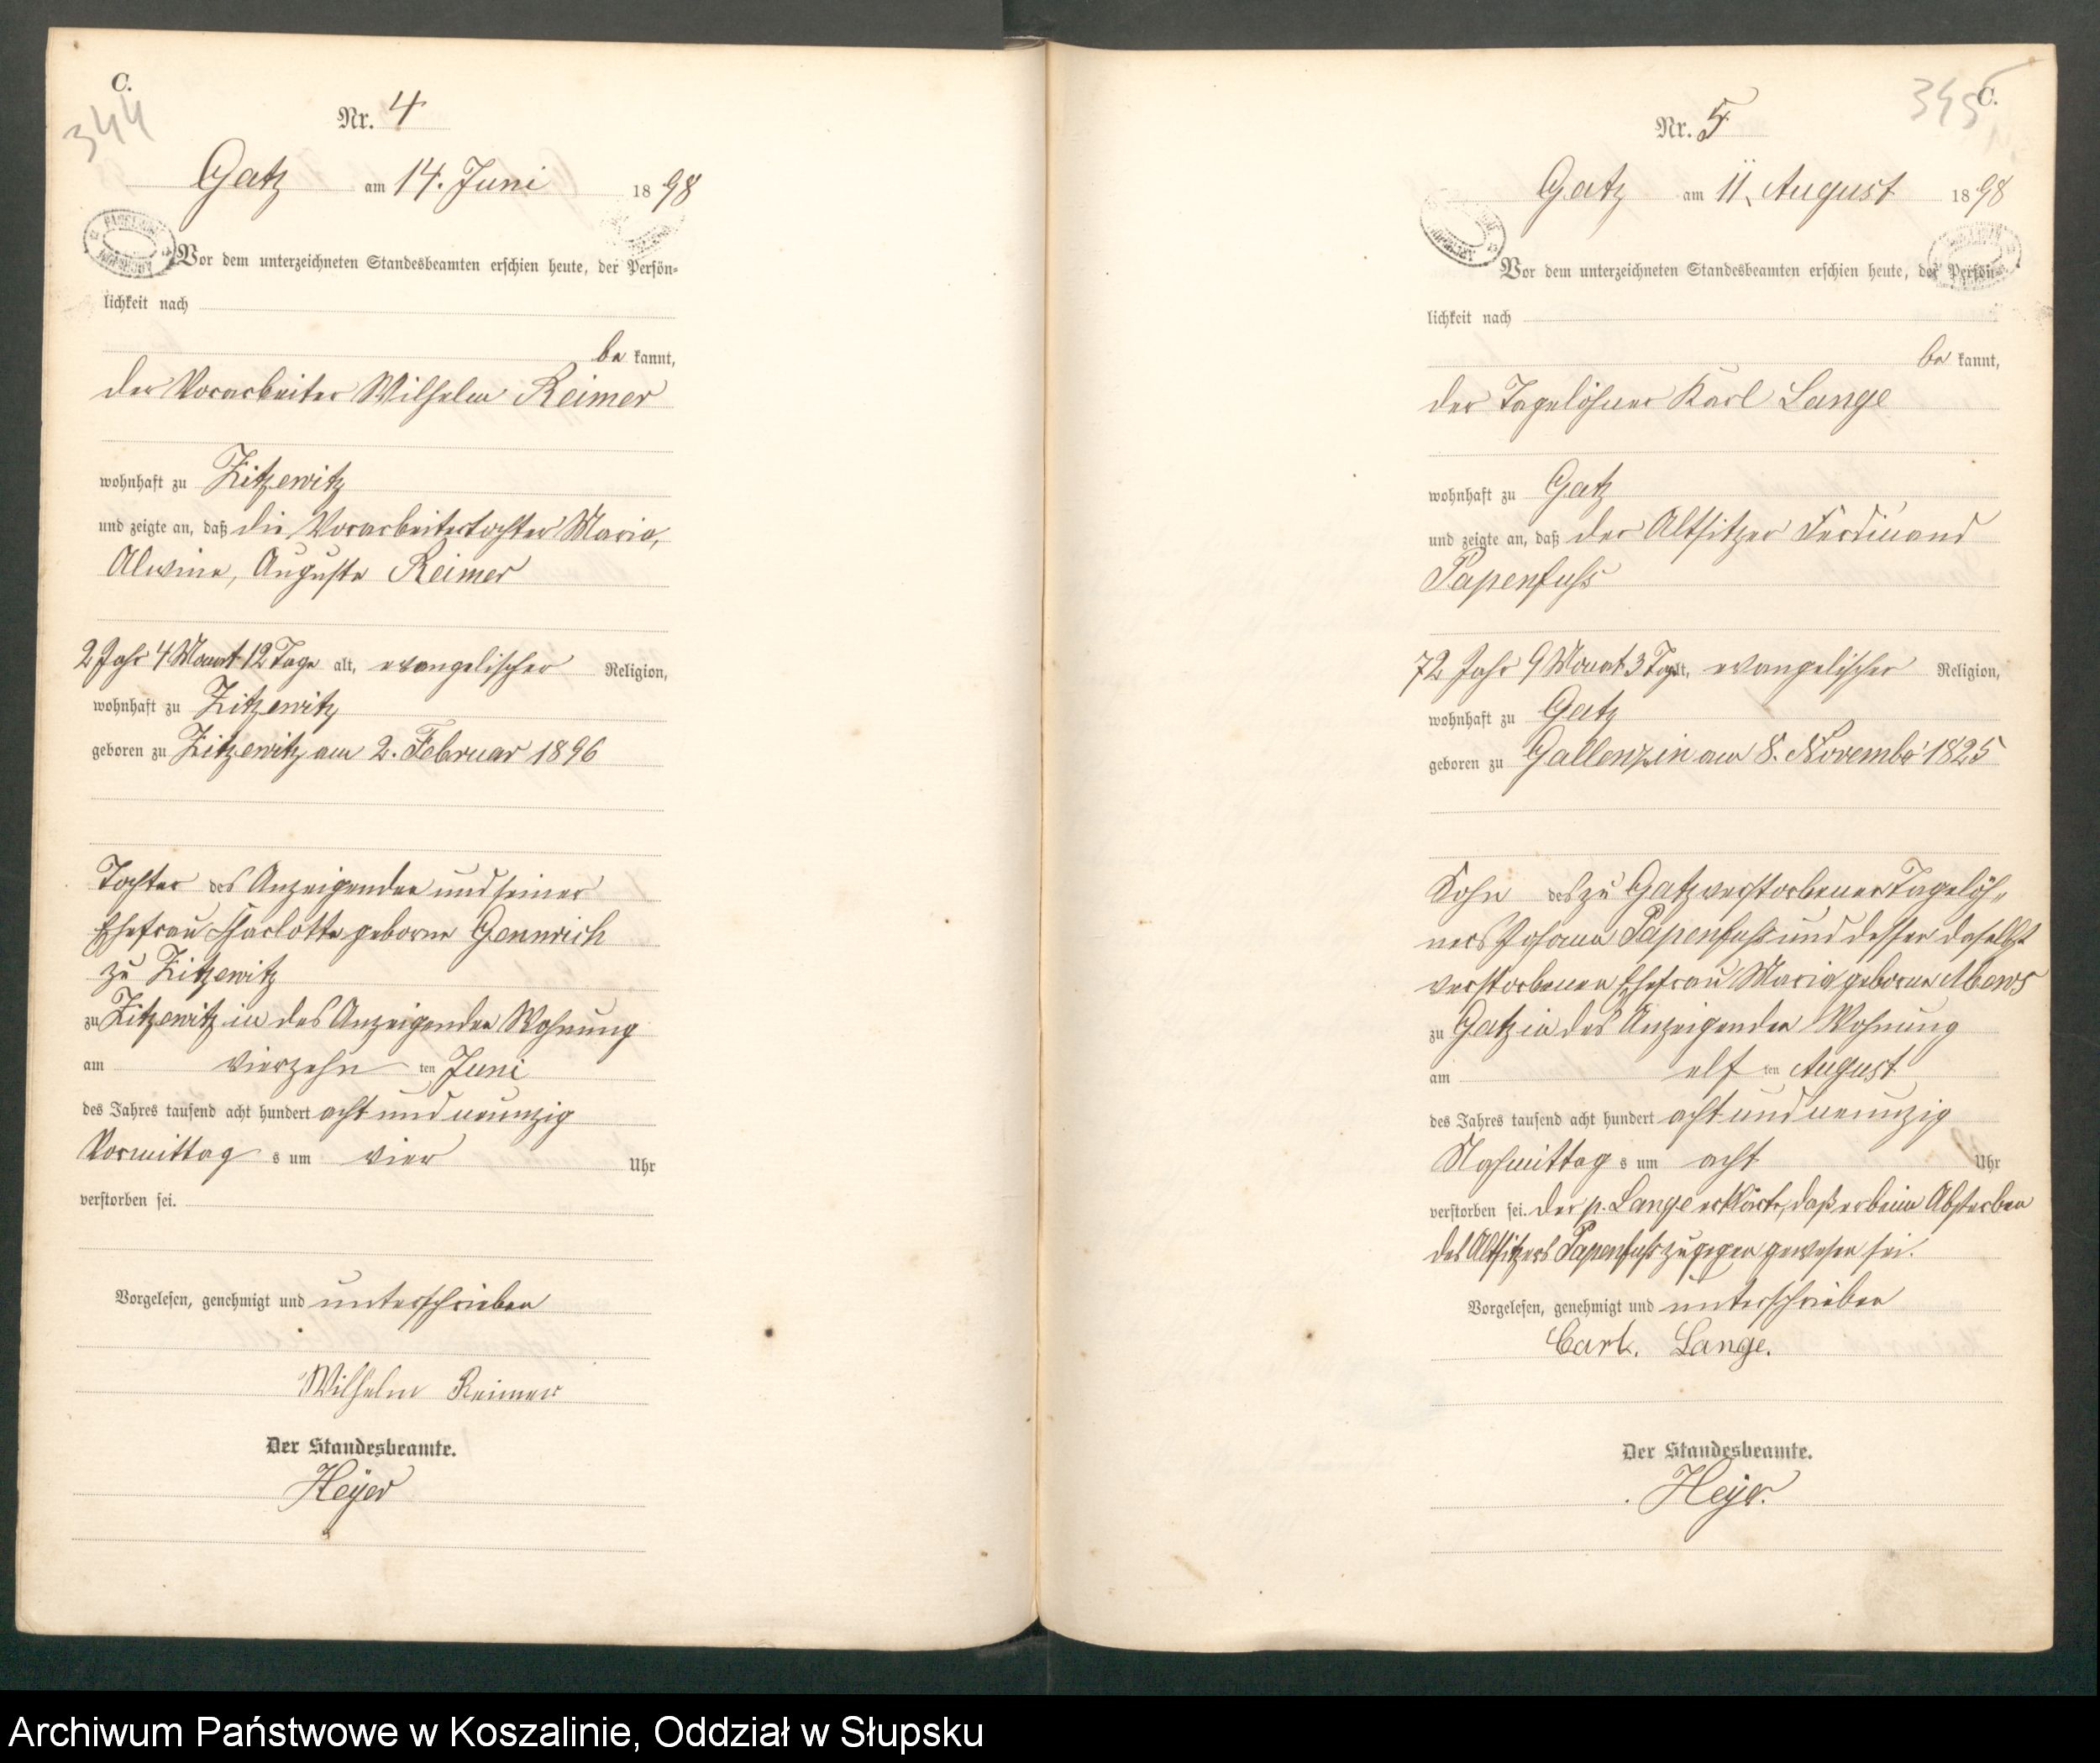 C.
344
Nr. 4
Gatz am 14. Juni 1898
Vor dem unterzeichneten Standesbeamten erschien heute, der Persön-
lichkeit nach
be kannt,
der Vorarbeiter Wilhelm Reimer
wohnhaft zu Zitzewitz
und zeigte an, daß die Vorarbeitertochter Maria,
Alwine, Auguste Reimer
2 Jahr 4 Monat 12 Tage alt, evangelischer Religion,
wohnhaft zu Zitzewitz
geboren zu Zitzewitz am 2. Februar 1896
Tochter des Anzeigenden und seiner
Ehefrau Charlotte geborne Gennrich
zu Zitzewitz
zu Zitzewitz in des Anzeigenden Wohnung
am vierzehn ten Juni
des Jahres tausend acht hundert acht und neunzig
Vormittag s um vier Uhr
verstorben sei.
Vorgelesen, genehmigt und unterschrieben
Wilhelm Reimer
Der Standesbeamte.
Heyer
C.
345
Nr. 5
Gatz am 11. August 1898
Vor dem unterzeichneten Standesbeamten erschien heute, der Persön-
lichkeit nach
be kannt,
der Tagelöhner Karl Lange
wohnhaft zu Gatz
und zeigte an, daß der Altsitzer Ferdinand
Papenfuss
72 Jahr 9 Monat 3 Tag alt, evangelischer Religion,
wohnhaft zu Gatz
geboren zu Gallenzin am 8. November 1825
Sohn des zu Gatz verstorbenen Tagelöh-
ners Johann Papenfuss und dessen daselbst
verstorbenen Ehefrau Maria geborne
zu Gatz in des Anzeigenden Wohnung
am elf ten August
des Jahres tausend acht hundert acht und neunzig
Nachmittag s um acht Uhr
verstorben sei. Der p. Lange erklärte, daß er beim Absterben
des Altsitzers Papenfuss zugegen gewesen sei.
Vorgelesen, genehmigt und unterschrieben
Carl. Lange.
Der Standesbeamte.
Heyer.
Archiwum Państwowe w Koszalinie, Oddział w Słupsku